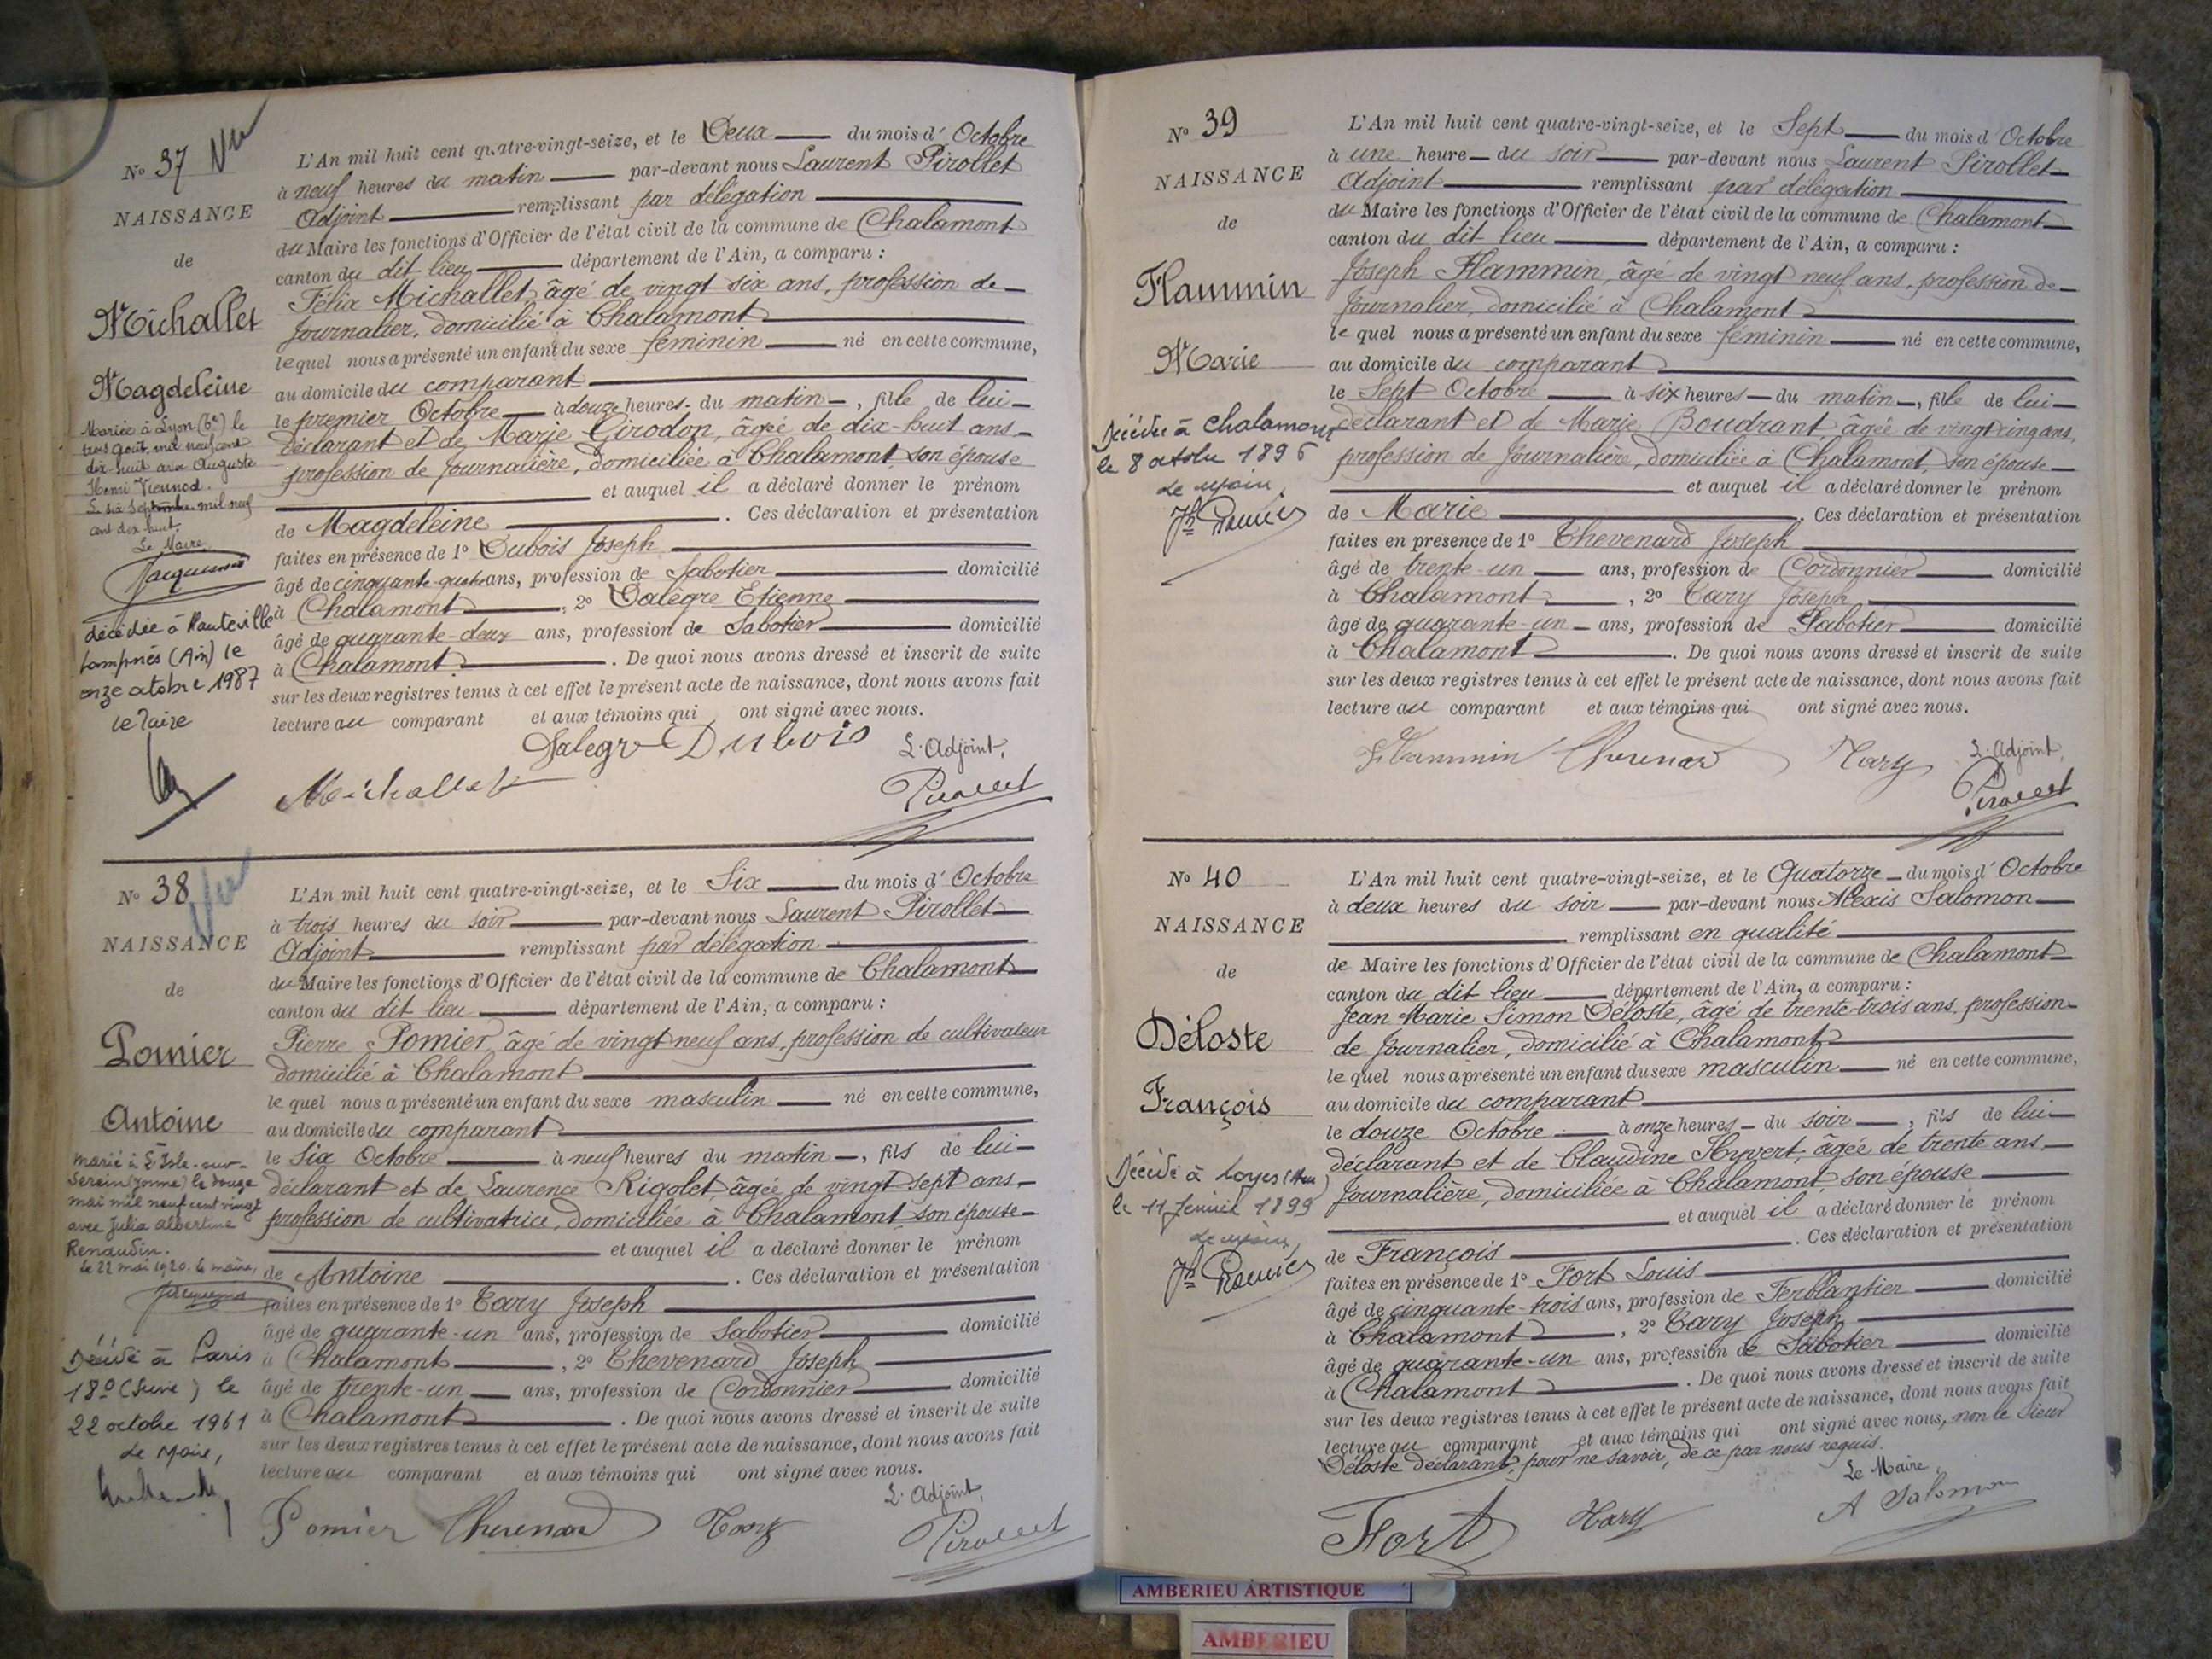 N° 37 Vu
NAISSANCE
de
Michallet
Magdeleine
Mariée à Lyon (6e) le
trois août mil neuf cent
dix huit avec Auguste
Henri Viennod.
Le six Septembre mil neuf
cent dix huit.
Le Maire
décédée à Hauteville
Lompnés (Ain) le
onze octobre 1987
le Maire
L'An mil huit cent quatre-vingt-seize, et le Deux du mois d'Octobre
à neuf heures du matin par-devant nous Laurent Pirollet
Adjoint remplissant par délégation
du Maire les fonctions d'Officier de l'état civil de la commune de Chalamont
canton du dit lieu département de l'Ain, a comparu :
Félix Michallet, âgé de vingt six ans, profession de
Journalier, domicilié à Chalamont
le quel nous a présenté un enfant du sexe féminin né en cette commune,
au domicile du comparant
le premier Octobre à douze heures du matin, fille de lui
déclarant et de Marie Girodon, âgée de dix-huit ans
profession de Journalière, domiciliée à Chalamont, son épouse
et auquel il a déclaré donner le prénom
de Magdeleine. Ces déclaration et présentation
faites en présence de 1° Dubois Joseph
âgé de cinquante-quatre ans, profession de Sabotier domicilié
à Chalamont, 2° Dalègre Etienne
âgé de quarante-deux ans, profession de Sabotier domicilié
à Chalamont. De quoi nous avons dressé et inscrit de suite
sur les deux registres tenus à cet effet le présent acte de naissance, dont nous avons fait
lecture au comparant et aux témoins qui ont signé avec nous.
Dalegre Dubois L'Adjoint,
Michallet Pirollet
N° 38 Vu
NAISSANCE
de
Pomier
Antoine
marié à L'Isle-sur-
Serein (Yonne) le douze
mai mil neuf cent vingt
avec Julia Albertine
Renaudin.
le 22 mai 1920. le maire,
Décédé à Paris
18e (Seine) le
22 octobre 1961
Le Maire,
L'An mil huit cent quatre-vingt-seize, et le Six du mois d'Octobre
à trois heures du soir par-devant nous Laurent Pirollet
Adjoint remplissant par délégation
du Maire les fonctions d'Officier de l'état civil de la commune de Chalamont
canton du dit lieu département de l'Ain, a comparu :
Pierre Pomier, âgé de vingt neuf ans, profession de cultivateur
domicilié à Chalamont
le quel nous a présenté un enfant du sexe masculin né en cette commune,
au domicile du comparant
le Six Octobre à neuf heures du matin, fils de lui
déclarant et de Laurence Rigolet, âgée de vingt sept ans
profession de cultivatrice, domiciliée à Chalamont son épouse
et auquel il a déclaré donner le prénom
de Antoine. Ces déclaration et présentation
faites en présence de 1° Tary Joseph
âgé de quarante-un ans, profession de Sabotier domicilié
à Chalamont, 2° Thevenard Joseph
âgé de trente-un ans, profession de Cordonnier domicilié
à Chalamont. De quoi nous avons dressé et inscrit de suite
sur les deux registres tenus à cet effet le présent acte de naissance, dont nous avons fait
lecture au comparant et aux témoins qui ont signé avec nous.
L'Adjoint,
Pomier Thevenard Tary Pirollet
N° 39
NAISSANCE
de
Flammin
Marie
Décédée à Chalamont
le 8 octobre 1896
L'An mil huit cent quatre-vingt-seize, et le Sept du mois d'Octobre
à une heure du soir par-devant nous Laurent Pirollet
Adjoint remplissant par délégation
du Maire les fonctions d'Officier de l'état civil de la commune de Chalamont
canton du dit lieu département de l'Ain, a comparu :
Joseph Flammin, âgé de vingt neuf ans, profession de
Journalier, domicilié à Chalamont
le quel nous a présenté un enfant du sexe féminin né en cette commune,
au domicile du comparant
le Sept Octobre à six heures du matin, fille de lui
déclarant et de Marie Boudrant, âgée de vingt cinq ans,
profession de Journalière, domiciliée à Chalamont, son épouse
et auquel il a déclaré donner le prénom
de Marie. Ces déclaration et présentation
faites en présence de 1° Thevenard Joseph
âgé de trente-un ans, profession de Cordonnier domicilié
à Chalamont, 2° Tary Joseph
âgé de quarante-un ans, profession de Sabotier domicilié
à Chalamont. De quoi nous avons dressé et inscrit de suite
sur les deux registres tenus à cet effet le présent acte de naissance, dont nous avons fait
lecture au comparant et aux témoins qui ont signé avec nous.
Flammin Thevenard Tary L'Adjoint,
Pirollet
N° 40
NAISSANCE
de
Déloste
François
Décédé à Loyes (Ain)
le 11 Janvier 1899
L'An mil huit cent quatre-vingt-seize, et le Quatorze du mois d'Octobre
à deux heures du soir par-devant nous Alexis Salomon
remplissant en qualité
de Maire les fonctions d'Officier de l'état civil de la commune de Chalamont
canton du dit lieu département de l'Ain, a comparu :
Jean Marie Simon Déloste, âgé de trente-trois ans, profession
de Journalier, domicilié à Chalamont
le quel nous a présenté un enfant du sexe masculin né en cette commune,
au domicile du comparant
le douze Octobre à onze heures du soir, fils de lui
déclarant et de Claudine Hyvert, âgée de trente ans,
Journalière, domiciliée à Chalamont, son épouse
et auquel il a déclaré donner le prénom
de François. Ces déclaration et présentation
faites en présence de 1° Fort Louis
âgé de cinquante-trois ans, profession de Ferblantier domicilié
à Chalamont, 2° Tary Joseph
âgé de quarante-un ans, profession de Sabotier domicilié
à Chalamont. De quoi nous avons dressé et inscrit de suite
sur les deux registres tenus à cet effet le présent acte de naissance, dont nous avons fait
lecture au comparant et aux témoins qui ont signé avec nous, non le Sieur
Déloste déclarant, pour ne savoir, de ce par nous requis.
Le Maire,
Fort Tary A Salomon
AMBERIEU ARTISTIQUE
AMBERIEU